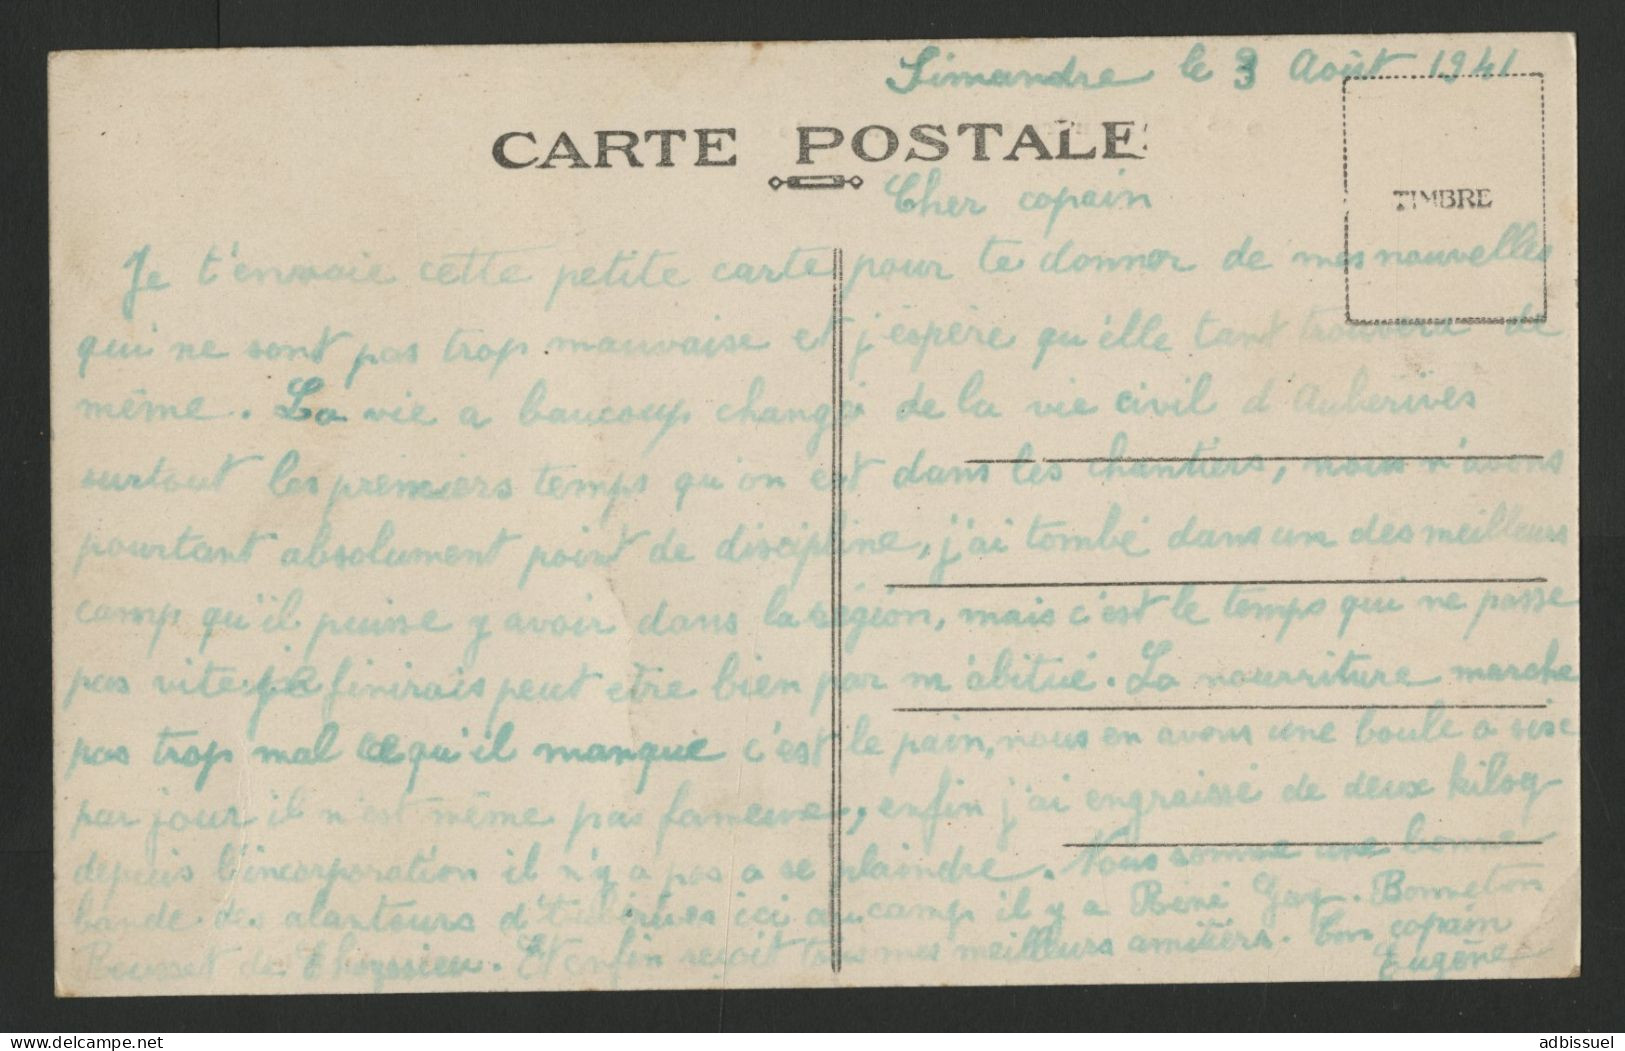 Simandre le 3 Août 1941
CARTE POSTALE
TIMBRE
Cher copain
Je t'envoie cette petite carte pour te donner de mes nouvelles
qui ne sont pas trop mauvaise et j'éspère qu'élle tant trouvera de
même. La vie a baucoup changé de la vie civil d'Auberives
surtout les premiers temps qu'on est dans les chantiers, nous n'avons
pourtant absolument point de discipline, j'ai tombé dans un des meilleurs
camp qu'il puisse y avoir dans la région, mais c'est le temps qui ne passe
pas vite je finirais peut etre bien par m'abitué. La nourriture marche
pas trop mal ce qu'il manque c'est le pain, nous en avons une boule a sise
par jour il n'est même pas fameux, enfin j'ai engraissé de deux kilog
depuis l'incorporation il n'y a pas a se plaindre. Nous somme une bonne
bande des alentours d'Auberives ici au camp il y a René Gay. Bonneton
Rousset de Thoyssieu. Et enfin reçoit tous mes meilleurs amitiers. Ton copain
Eugène
adbissuel
delcampe.net